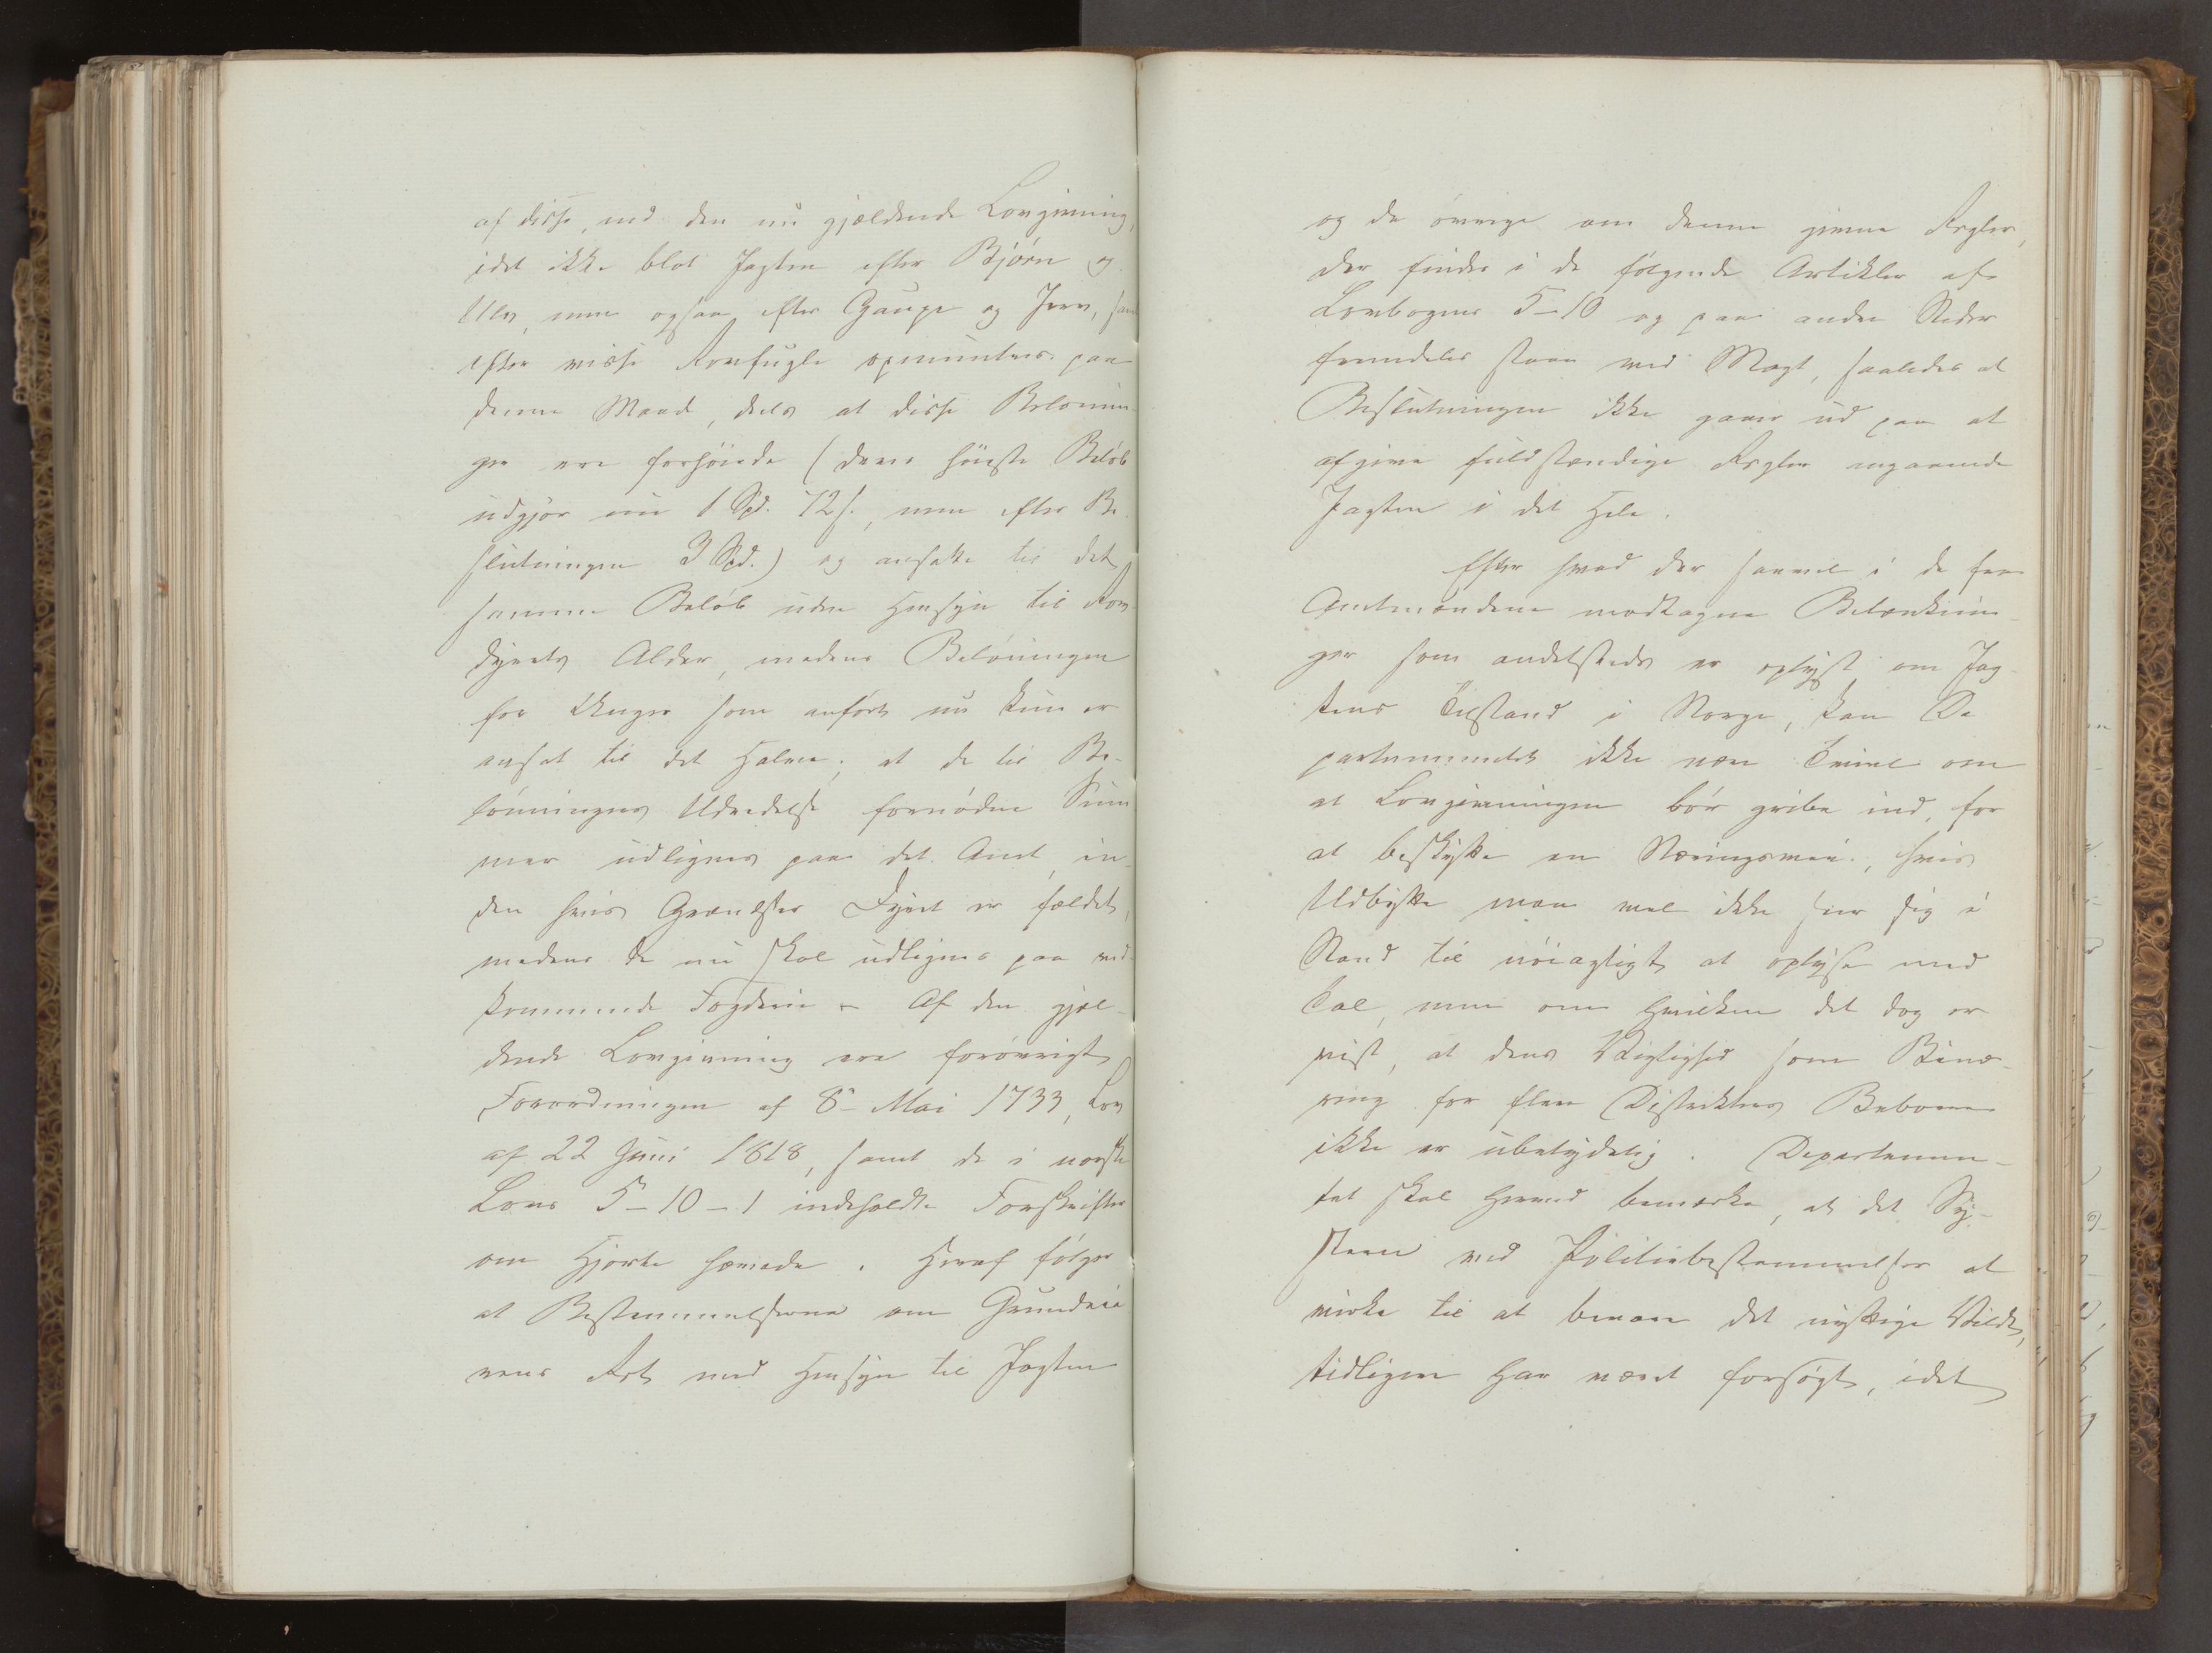 af disse, end den nu gjældende Lovgivning,
idet ikke blot Jagten efter Bjørn og
Ulv, men ogsaa efter Gaupe og Jerv, samt
efter visse Rovfugle opmuntres paa
denne Maade, deels at disse Belønnin-
ger ere forhøiede (deres høieste Beløb
udgjør nu 1 Spd. 72 s., men efter Be-
slutningen 3 Spd.) og ansatte til det
samme Beløb uden Hensyn til Rov-
dyrets Alder, medens Belønningen
for Unger som anført nu kun er
ansat til det Halve; at de til Be-
lønningens Udredelse fornødne Sum-
mer udlignes paa det Amt, in-
den hvis Grændser Dyret er fældet,
medens de nu skal udlignes paa ved-
kommende Fogderie. – Af den gjæl-
dende Lovgivning ere forøvrigt
Forordningen af 8de Mai 1733, Lov
af 22 Juni 1818, samt de i norske
Lovs 5–10–1 indeholdte Forskrifter
om Hjorte hævede. Heraf følger
at Bestemmelserne om Grundeie-
rens Ret med Hensyn til Jagten
og de øvrige om denne givne Regler,
der findes i de følgende Artikler af
Lovbogens 5–10 og paa andre Steder
fremdeles staae ved Magt, saaledes at
Beslutningen ikke gaaer ud paa at
afgive fuldstændige Regler angaaende
Jagten i det Hele.
Efter hvad der saavel i de fra
Amtmændene modtagne Betænknin-
ger som andetsteds er oplyst om Jag-
tens Tilstand i Norge, kan De-
partementet ikke nære Tvivl om
at Lovgivningen bør gribe ind, for
at beskytte en Næringsvei, hvis
Udbytte man vel ikke seer sig i
Stand til nøiagtigt at oplyse med
Tal, men om hvilken det dog er
vist, at dens Vigtighed som Binæ-
ring for flere Districters Beboere
ikke er ubetydelig. Departemen-
tet skal herved bemærke, at det Sy-
stem ved Politiebestemmelser at
virke til at bevare det nyttige Vildt,
tidligere har været forsøgt, idet